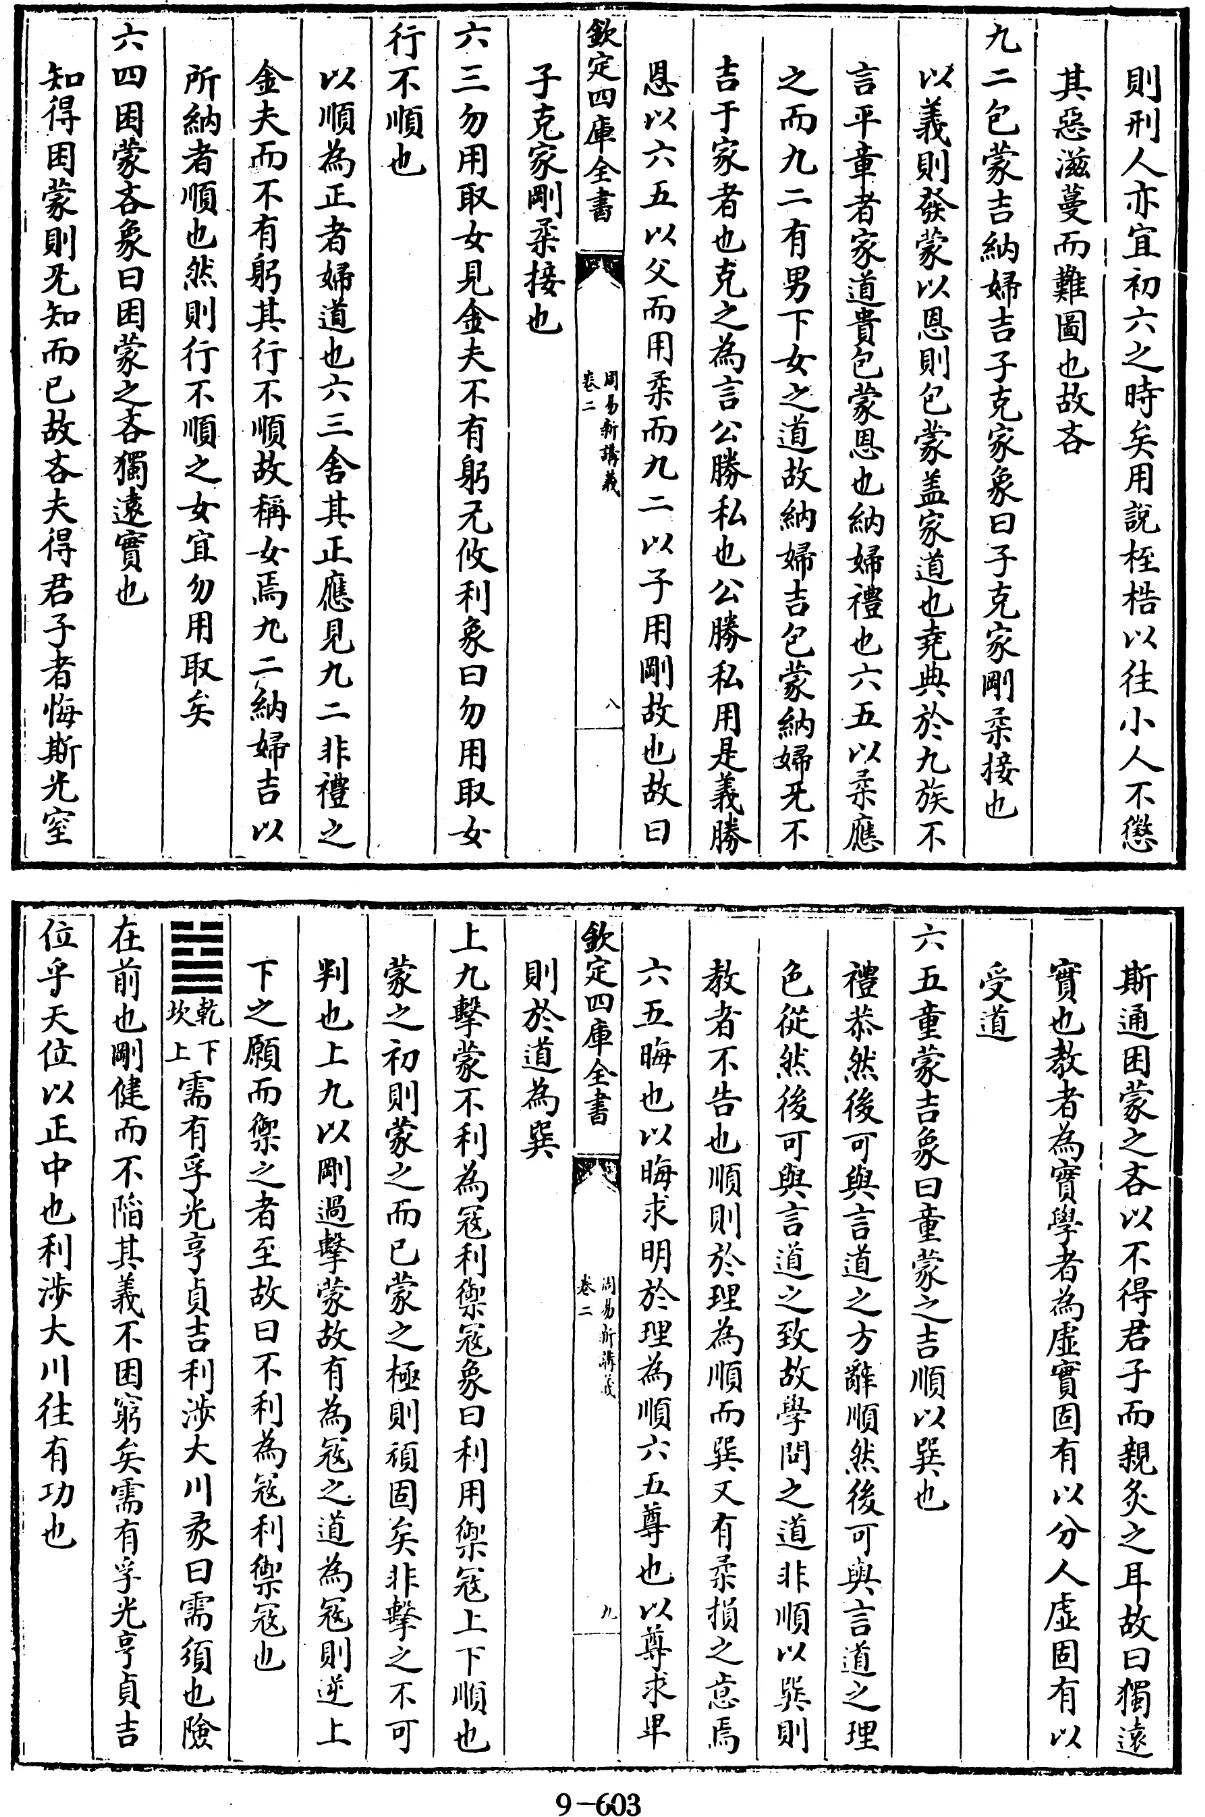 則刑人亦宜初六之時矣用說桎梏以往小人不懲
其惡滋蔓而難圖也故吝
九二包蒙吉納婦吉子克家象曰子克家剛柔接也
以義則發蒙以恩則包蒙盖家道也堯典於九族不
言平章者家道貴包蒙恩也納婦禮也六五以柔應
之而九二有男下女之道故納婦吉包蒙納婦旡不
吉于家者也克之為言公勝私也公勝私用是義勝
恩以六五以父而用柔而九二以子用剛故也故曰
欽定四庫全書
周易新講義
卷二
八
子克家剛柔接也
六三勿用取女見金夫不有躬旡攸利象曰勿用取女
行不順也
以順為正者婦道也六三舍其正應見九二非禮之
金夫而不有躬其行不順故稱女焉九二納婦吉以
所納者順也然則行不順之女宜勿用取矣
六四困蒙吝象曰困蒙之吝獨遠實也
知得困蒙則旡知而已故吝夫得君子者悔斯光窒
斯通困蒙之吝以不得君子而親炙之耳故曰獨遠
實也教者為實學者為虛實固有以分人虛固有以
受道
六五童蒙吉象曰童蒙之吉順以巽也
禮恭然後可與言道之方辭順然後可與言道之理
色從然後可與言道之致故學問之道非順以巽則
教者不告也順則於理為順而巽又有柔損之意焉
六五晦也以晦求明於理為順六五尊也以尊求卑
欽定四庫全書
周易新講義
卷二
九
則於道為巽
上九擊蒙不利為冦利禦冦象曰利用禦冦上下順也
蒙之初則蒙之而已蒙之極則頑固矣非擊之不可
判也上九以剛過擊蒙故有為冦之道為冦則逆上
下之願而禦之者至故曰不利為冦利禦冦也
乾下
坎上
需有孚光亨貞吉利涉大川彖曰需須也險
在前也剛健而不陷其義不困窮矣需有孚光亨貞吉
位乎天位以正中也利涉大川往有功也
9-603